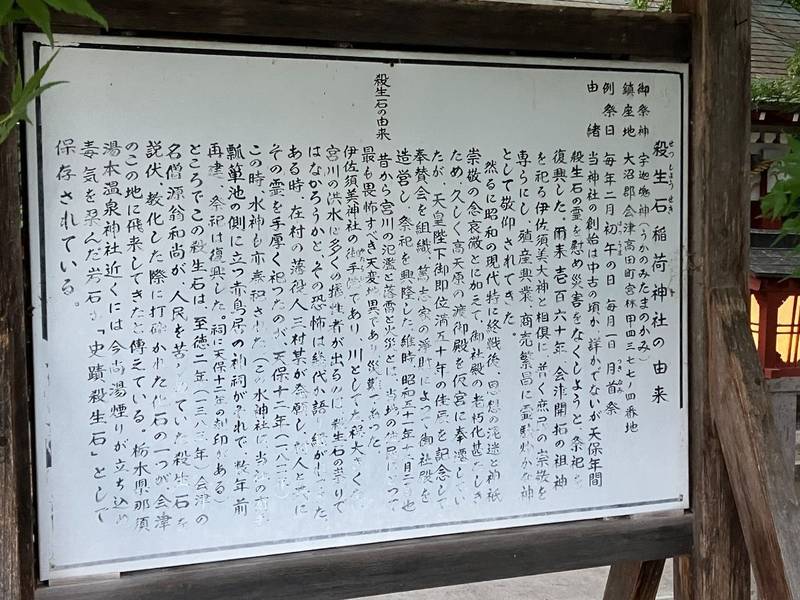 殺生石稲荷神社の由来
せっしょうせき
御祭神 宇迦魂神(うかのみたまのかみ)
鎮座地 大沼郡会津高田町宮林甲四三七七ノ四番地
例祭日 毎年二月初午の日 毎月一日月首祭
うま つきなみ
由緒 当神社の創始は中古の頃か詳かでないが天保年間
殺生石の霊を慰め災害をなくしようと、祭祀を
復興した。爾来壱百六十年、会津開拓の祖神
を祀る伊佐須美大神と相俱に普く庶民の崇敬を
専らにし、殖産興業、商売繁昌に霊験 かな神
として敬仰されてきた。
然るに昭和の現代特に終戦後、思想の混迷と神祇
崇敬の念衰微とに加えて、御社殿の老朽化甚だしき
ため、久しく高天原の渡御殿を仮宮に奉遷してい
たが、天皇陛下御即位満五十年の佳辰を記念して
奉賛会を組織、篤志家の浄財によって御社殿を
造営し、祭祀を興隆した。維時、昭和 十年 月 日也
殺生石の由来
昔から宮川の氾濫と落雷と火災とは、当地の住民にとって
最も畏怖すべき天変地異であり災難であった。
伊佐須美神社の御手洗川であり、川としては大きくな
宮川の洪水に多くの犠牲者が出るのは、殺生石の祟りで
はなかろうかと、その恐怖は幾代か語り継がれてきた。
ある時、在村の落役人三村某が発願し、村人と共に
その霊を手厚く祀ったのが、天保十二年(一八四一)
この時、水神も亦奉祀された(この水神社は当 の
瓢箪池の側に立つ赤鳥居の神祠がそれで、数年前
再建、祭祀は復興した。祠に天保十二年の刻印がある)
ところでこの殺生石は、至徳二年(一三八五年)会津の
名僧源翁和尚が、人民を苦しめていた殺生石を
説伏、教化した際に打砕かれた化石の一つが会津
のこの地に飛来してきたと傳えている。栃木県那須
湯本温泉神社近くには今尚湯煙りが立ち込め
毒気を孕んだ岩石が「史蹟殺生石」として
保存されている。